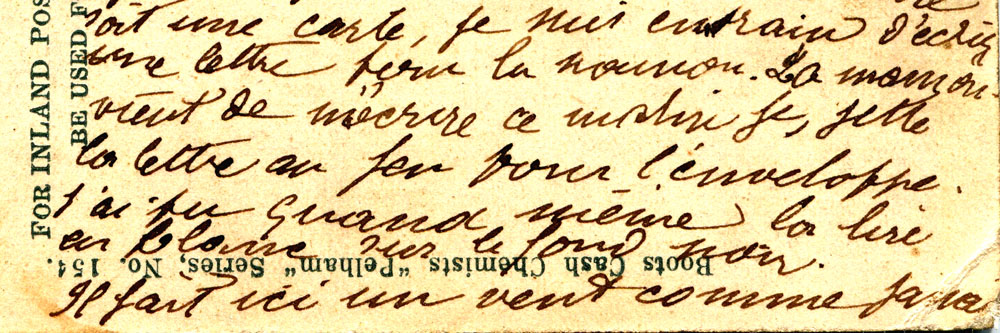 soit une carte, je suis entrain d'écrire
une lettre pour la maman. La maman
vient de m'écrire ce matin je, jette
la lettre au feu pour l'enveloppe.
J'ai pu quand même la lire
en blanc sur le fond noir.
Il fait ici un vent comme
FOR INLAND POS
BE USED F
Boots Cash Chemists "Pelham" Series, No. 154.